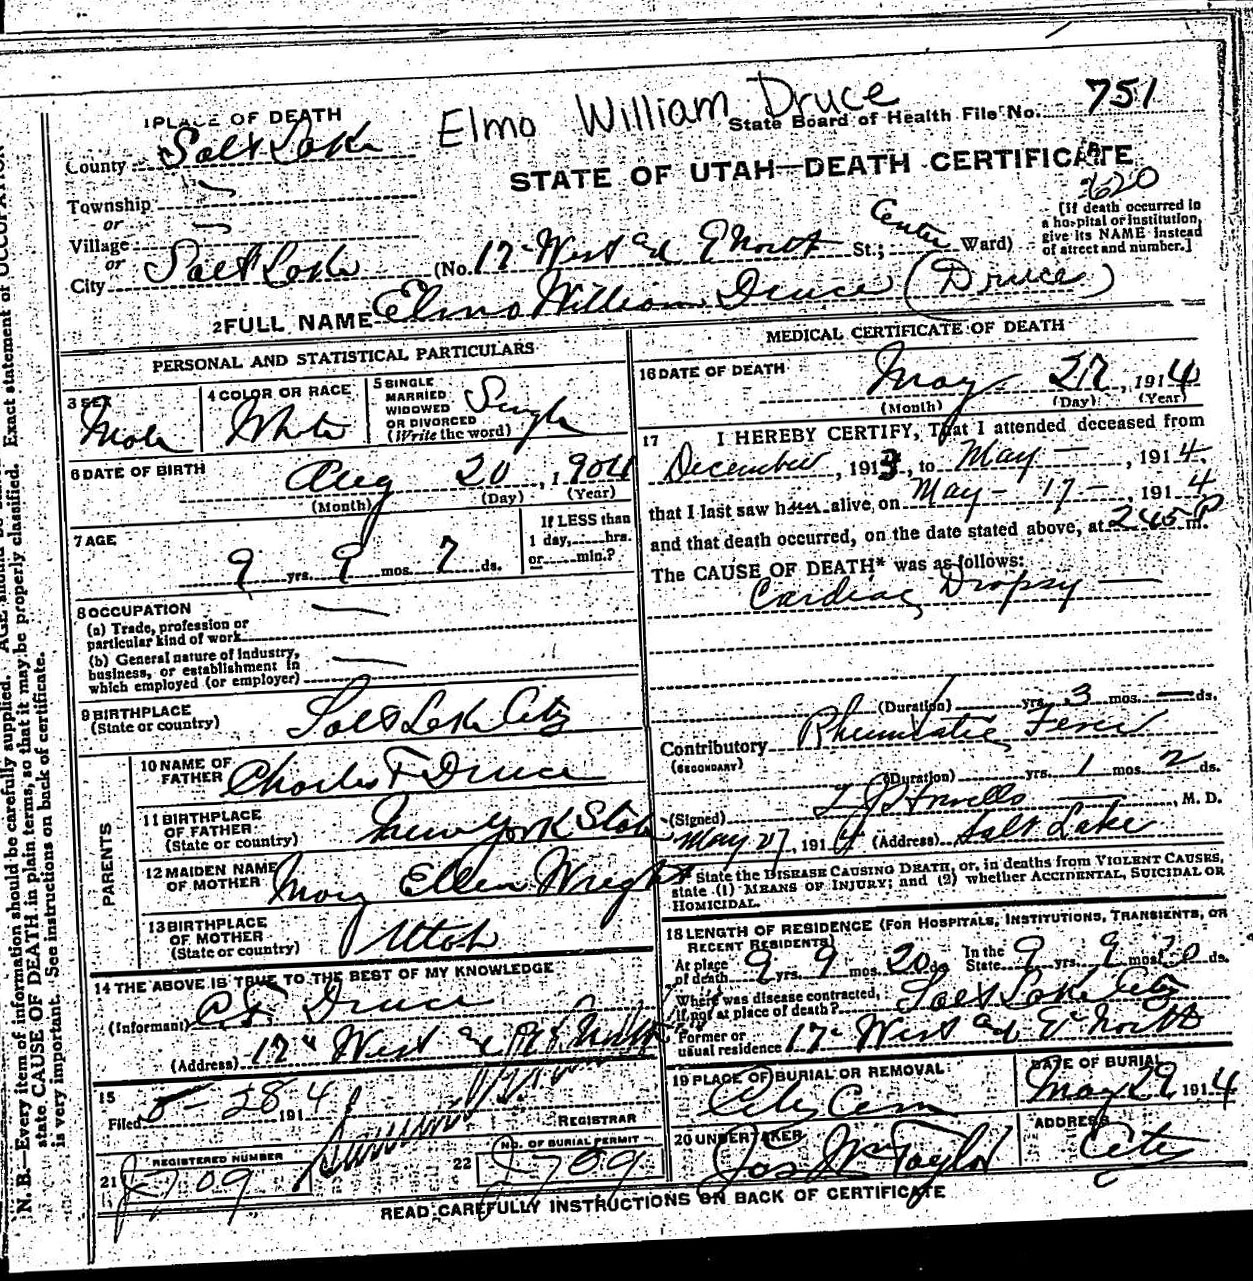 Elmo William Druce
1 PLACE OF DEATH
State Board of Health File No. 751
County Salt Lake
STATE OF UTAH—DEATH CERTIFICATE
Township
or
Village
or
City Salt Lake (No. 17 West and North St.; Center Ward)
[If death occurred in
a hospital or institution,
give its NAME instead
of street and number.]
2 FULL NAME Elmo William Druce (Druce)
PERSONAL AND STATISTICAL PARTICULARS
3 SEX
Male
4 COLOR OR RACE
White
5 SINGLE
MARRIED
WIDOWED
OR DIVORCED
(Write the word)
Single
6 DATE OF BIRTH
Aug 20, 1904
(Month) (Day) (Year)
7 AGE
9 yrs. 9 mos. 7 ds.
If LESS than
1 day,......hrs.
or......min.?
8 OCCUPATION
(a) Trade, profession or
particular kind of work
(b) General nature of industry,
business, or establishment in
which employed (or employer)
9 BIRTHPLACE
(State or country)
Salt Lake City
PARENTS
10 NAME OF
FATHER
Charles F Druce
11 BIRTHPLACE
OF FATHER
(State or country)
New York State
12 MAIDEN NAME
OF MOTHER
Mary Ellen Wright
13 BIRTHPLACE
OF MOTHER
(State or country)
Utah
14 THE ABOVE IS TRUE TO THE BEST OF MY KNOWLEDGE
(Informant) C F Druce
(Address) 17" West
15
Filed 5-28 1914
REGISTRAR
REGISTERED NUMBER
21
NO. OF BURIAL PERMIT
22
MEDICAL CERTIFICATE OF DEATH
16 DATE OF DEATH
May 27, 1914
(Month) (Day) (Year)
17 I HEREBY CERTIFY, That I attended deceased from
December, 1913, to May —, 1914
that I last saw him alive, on May - 17 -, 1914
and that death occurred, on the date stated above, at 245 P m.
The CAUSE OF DEATH* was as follows:
Cardiac Dropsy —
(Duration) yrs. 3 mos. — ds.
Contributory Rheumatic Fever
(SECONDARY)
(Duration) yrs. 1 mos. 2 ds.
(Signed) Howells, M. D.
May 27, 1914 (Address) Salt Lake
* State the DISEASE CAUSING DEATH, or, in deaths from VIOLENT CAUSES,
state (1) MEANS OF INJURY; and (2) whether ACCIDENTAL, SUICIDAL OR
HOMICIDAL.
18 LENGTH OF RESIDENCE (FOR HOSPITALS, INSTITUTIONS, TRANSIENTS, OR
RECENT RESIDENTS)
At place
of death 9 yrs. 9 mos. 20 ds.
In the
State 9 yrs. 9 mos. 20 ds.
Where was disease contracted,
if not at place of death? Salt Lake City
Former or
usual residence 17" West and North
19 PLACE OF BURIAL OR REMOVAL
City Cem
DATE OF BURIAL
May 29, 1914
20 UNDERTAKER
Jos Wm Taylor
ADDRESS
City
READ CAREFULLY INSTRUCTIONS ON BACK OF CERTIFICATE
N. B.—Every item of information should be carefully supplied. AGE should be
state CAUSE OF DEATH in plain terms, so that it may be properly classified. Exact statement of OCCUPATION
is very important. See instructions on back of certificate.